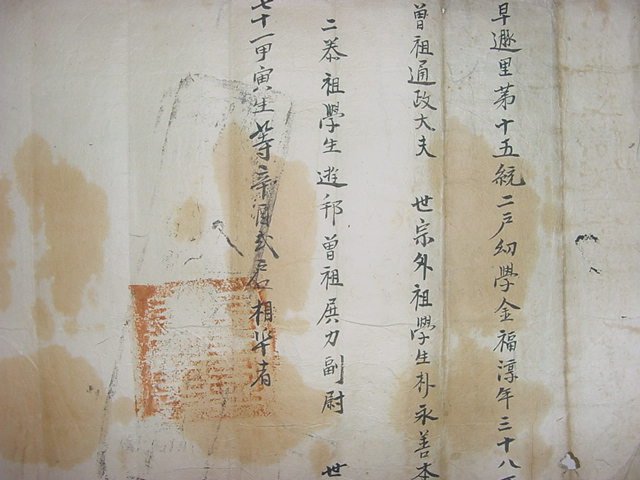 早遯里第十五統二戶幼學金福淳年三十八
曾祖通政大夫 世宗外祖學生朴永善本
二恭祖學生 邦曾祖展力副尉 世
七十一甲寅生等辛酉式戶口相準者